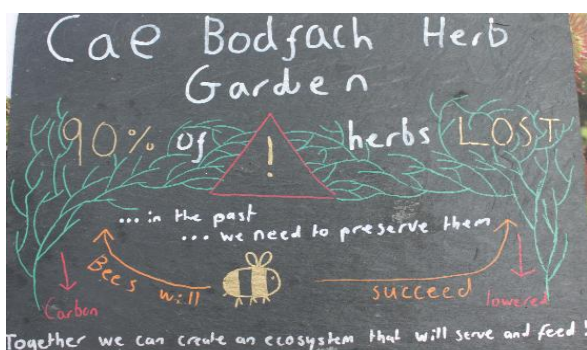 Cae Bodfach Herb
Garden
90% of ! herbs LOST
... in the past
... we need to preserve them
Bees will succeed
Carbon lowered
Together we can create an ecosystem that will serve and feed!